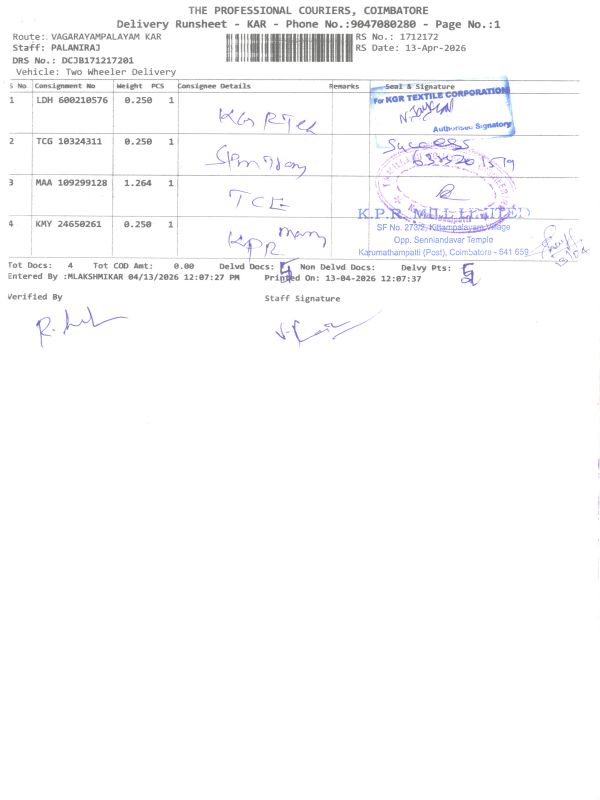 THE PROFESSIONAL COURIERS, COIMBATORE
Delivery Runsheet - KAR - Phone No.:9047080280 - Page No.:1
Route: VAGARAYAMPALAYAM KAR
RS No.: 1712172
Staff: PALANIRAJ
RS Date: 13-Apr-2026
DRS No.: DCJB171217201
Vehicle: Two Wheeler Delivery
S No Consignment No Weight PCS Consignee Details Remarks Seal & Signature
1 LDH 600210576 0.250 1
For KGR TEXTILE CORPORATION
Authorised Signatory
2 TCG 10324311 0.250 1
Success
3 MAA 109299128 1.264 1 TCE
4 KMY 24650261 0.250 1 KPR
K.P.R. MILL LIMITED
SF No. 273/2, Kittampalayam Village
Opp. Senniandavar Temple
Karumathampatti (Post), Coimbatore - 641 659
Tot Docs: 4 Tot COD Amt: 0.00 Delvd Docs: Non Delvd Docs: Delvy Pts:
Entered By :MLAKSHMIKAR 04/13/2026 12:07:27 PM Printed On: 13-04-2026 12:07:37
Verified By Staff Signature